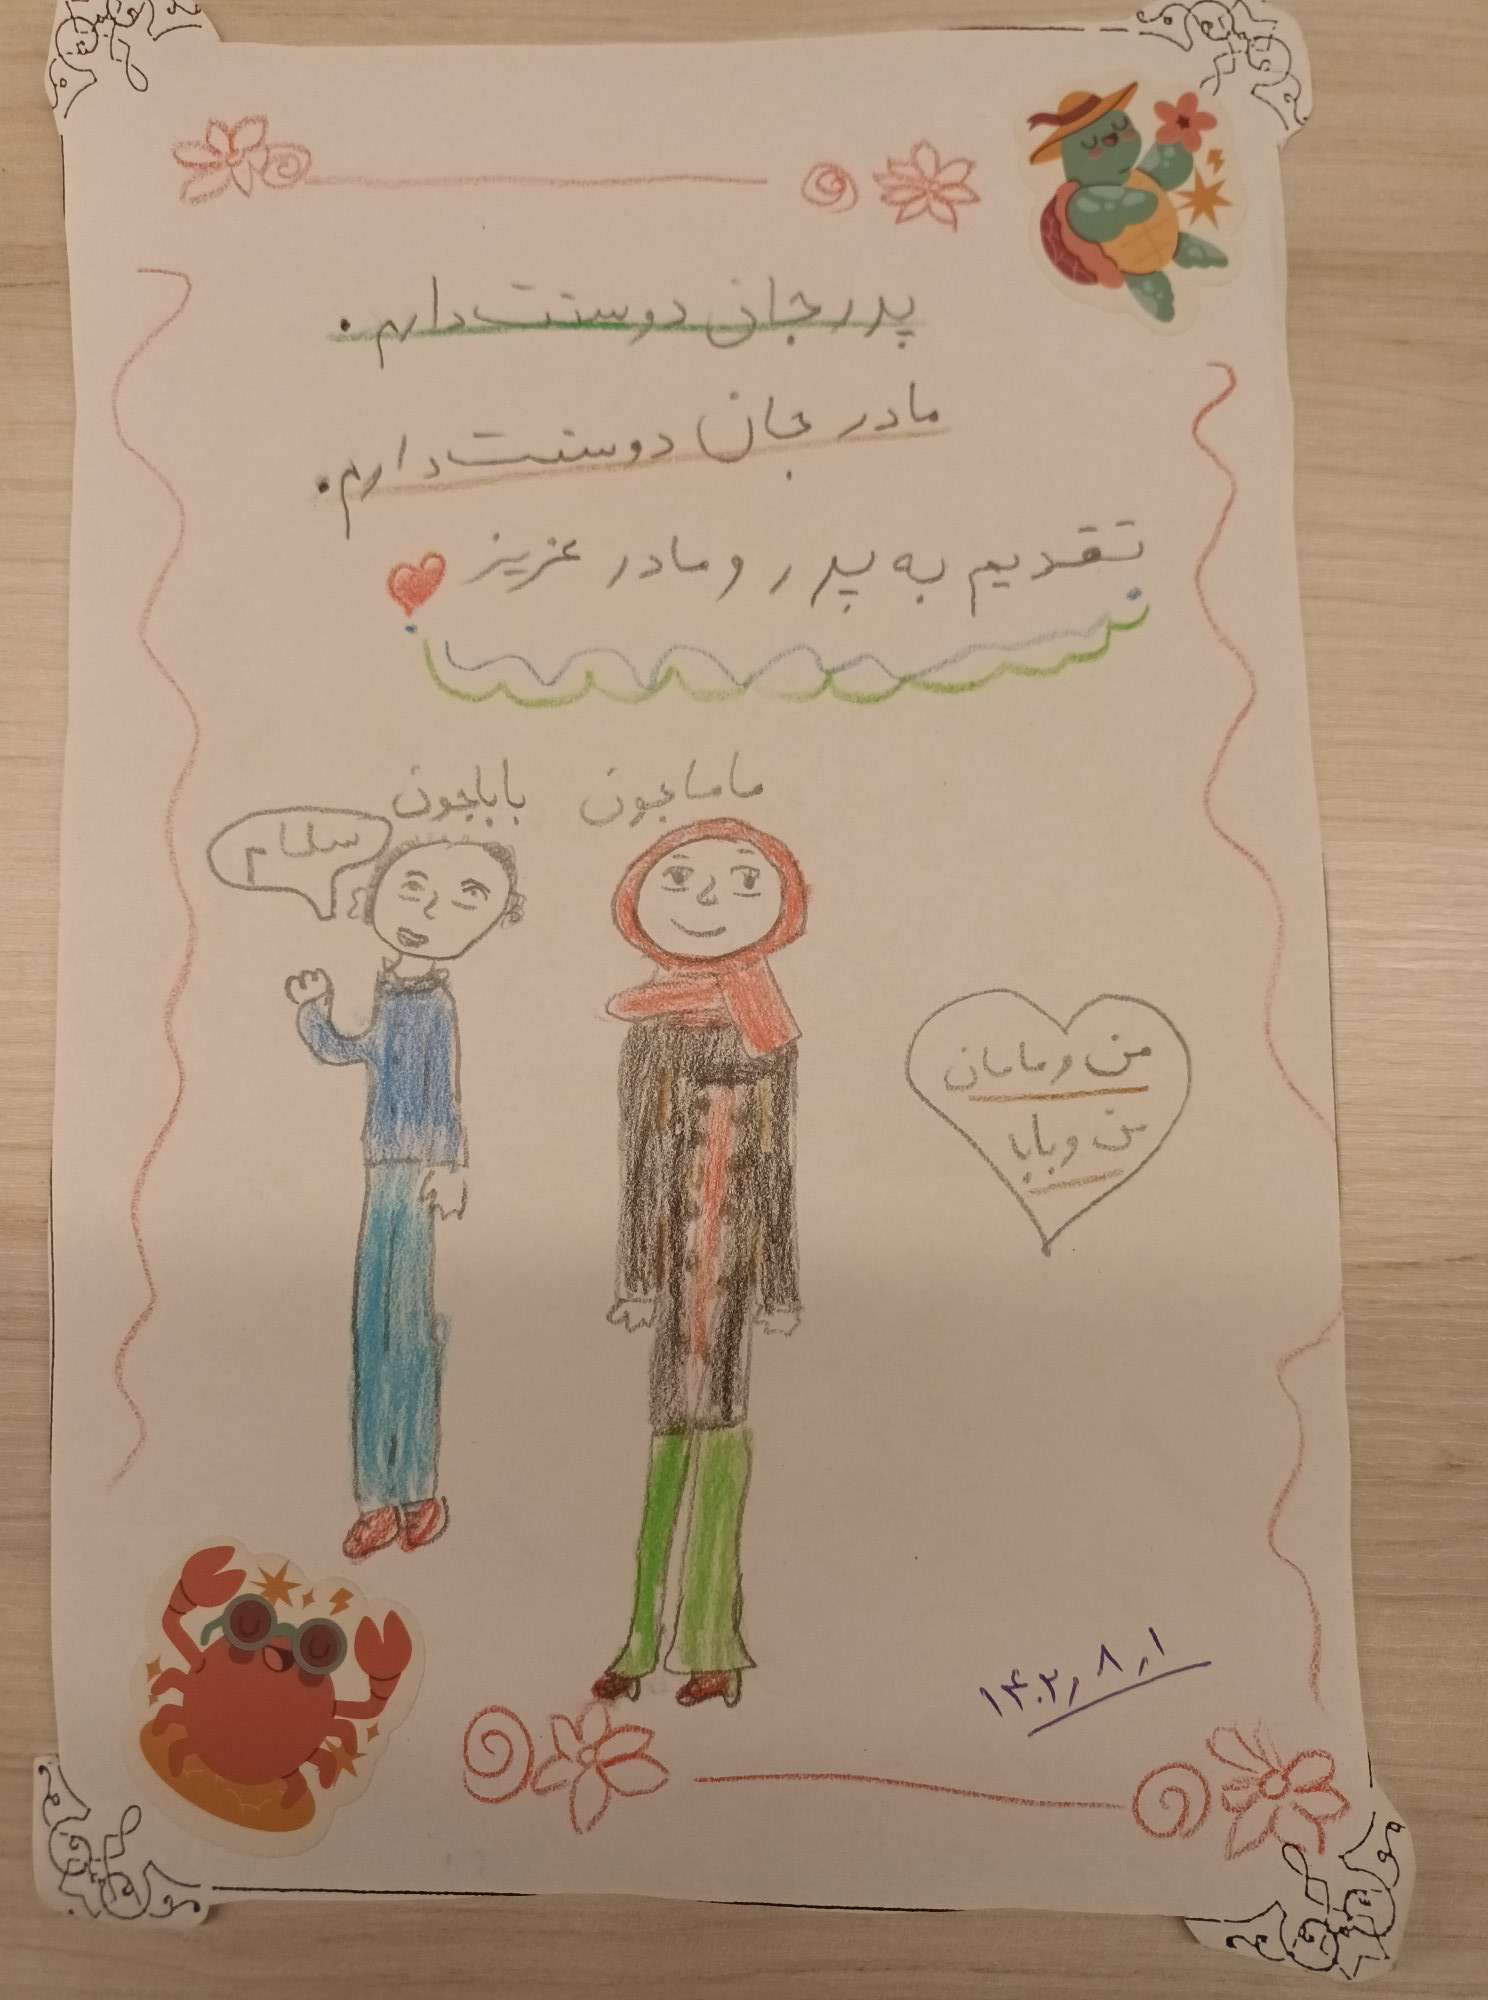 پدر جان دوستت دارم.
مادر جان دوستت دارم.
تقدیم به پدر و مادر عزیز
ماماجون باباجون
سلام
من و مامان
من و بابا
۱۴۰۲٫۸٫۱